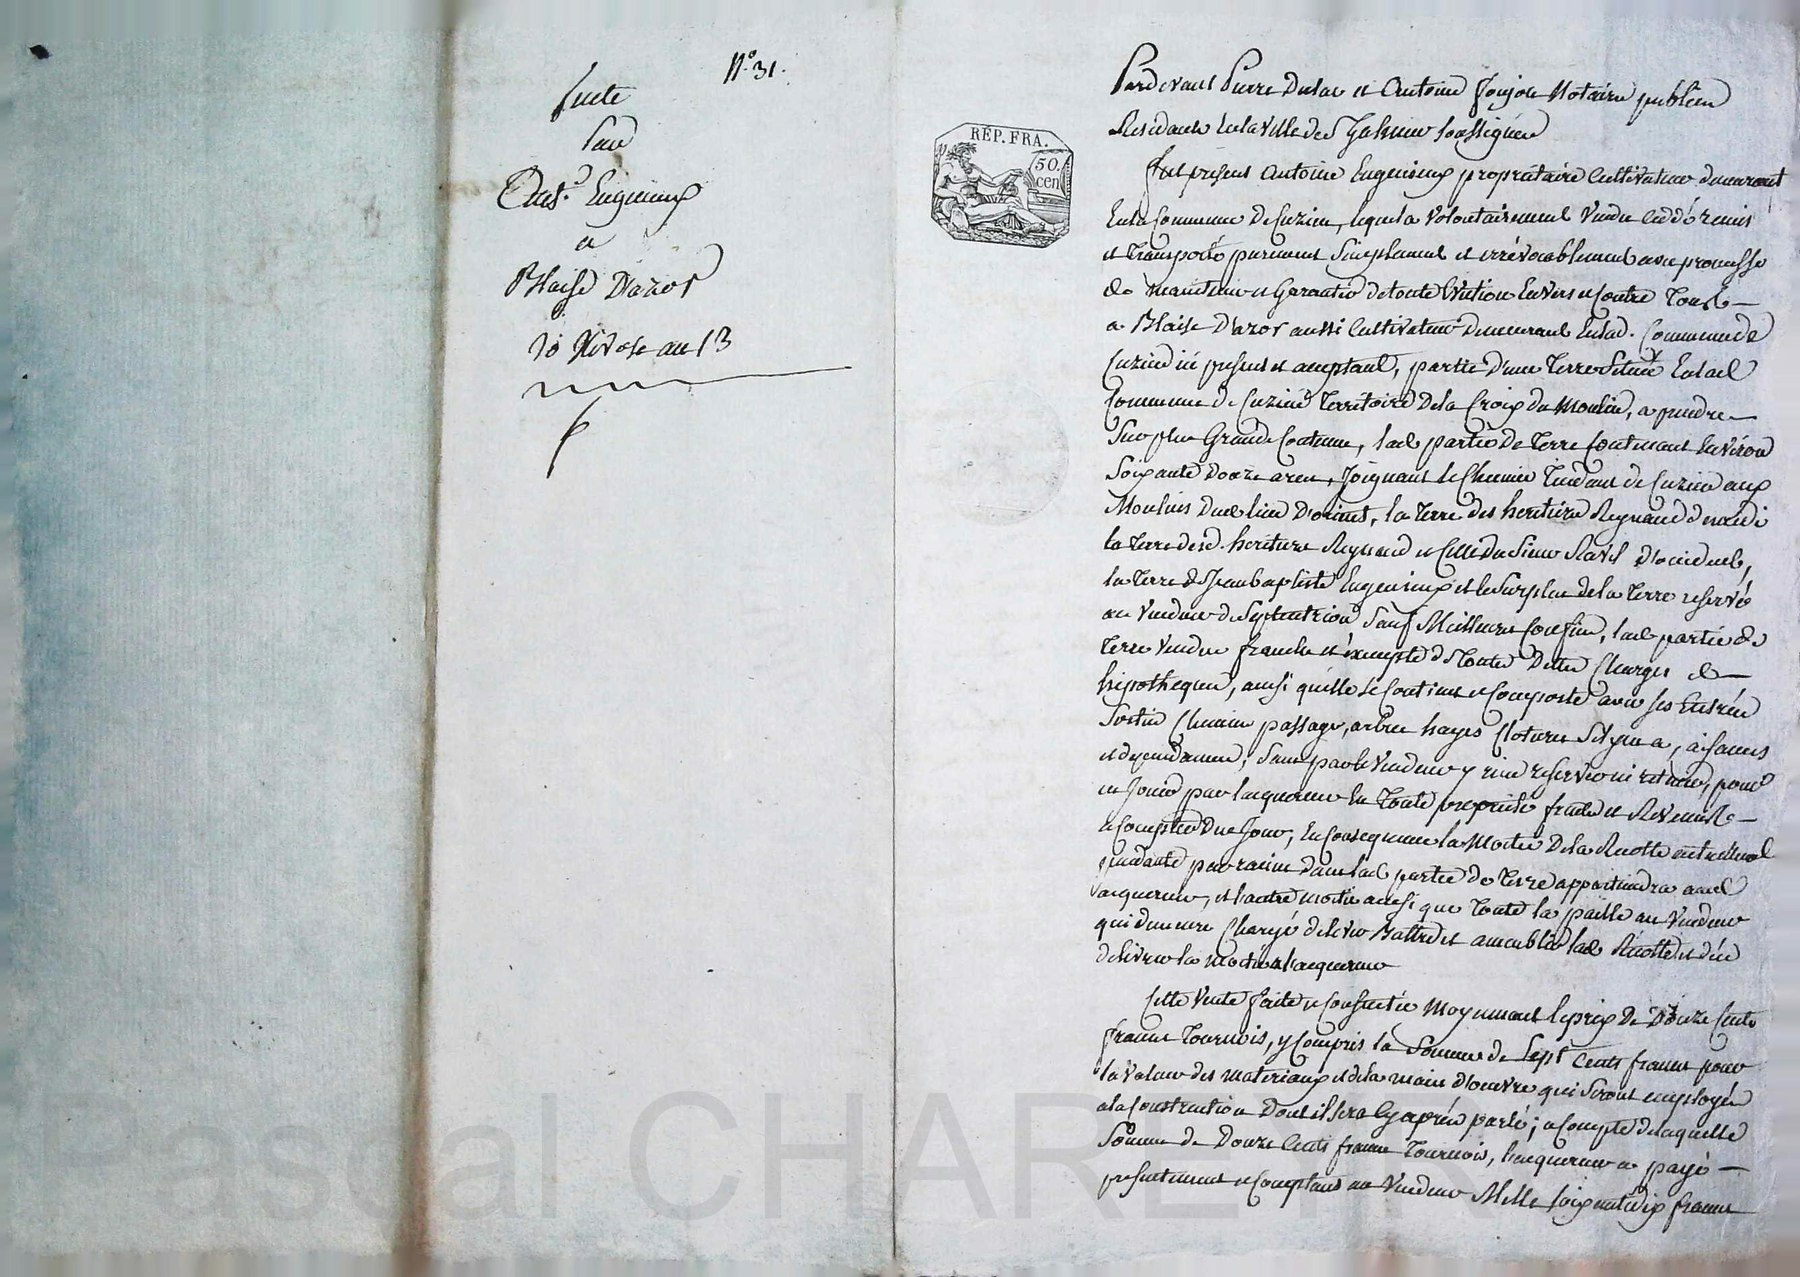 N.° 31.
Vente
Par
Ant.e Eugenieux
a
Blaise Dazor
20 Nivose an 13
RÉP. FRA.
50. cen
Pardevant Pierre Dulac et Antoine Joujon Notaires publics
Residants En la ville de St Galmier soussignés
fut présent Antoine Eugenieux propriétaire Cultivateur demeurant
En la Commune De Cuzieu, lequel a Volontairement Vendu Cedé remis
et Transporté purement Simplement et irrévocablement avec promesse
de Maintenir et Garantir de toute Eviction Envers et Contre Tous
a Blaise Dazor aussi Cultivateur Demeurant En lad. Commune de
Cuzieu ici present et acceptant, partie D'une Terre Située En lad.
Commune de Cuzieu Territoire De la Croix du Moulin, a prendre
Sur plus Grande Contenue, lad. partie De Terre Contenant Environ
Soixante Douze ares, Joignant le Chemin Tendant de Cuzieu aux
Moulins Dud. lieu D'orient, la Terre des heritiers Reynaud de midi
la Terre desd. heritiers Reynaud et Celle du Sieur Ravel D'occident,
la Terre de Jean baptiste Eugenieux et le Surplus de la Terre reservé
au Vendeur de Septentrion Sauf Meilleurs Confins, lad. partie de
Terre Vendue franche et éxempte de Toutes Dettes Charges et
hipotheques, ainsi quelle Se Contient et Comporte avec ses Entrées
Sorties Chemins passages, arbres hayes Clotures Si y en a, aisances
et dependances, Sans par le Vendeur y rien reserver ni retenir, pour
en Jouir par lacquereur En Toute propriété fruits et Revenus
a Compter De ce Jour, En Consequence la Moitié De la Recolte actuellement
pendante par racine Dans lad. partie De Terre appartiendra aud.
acquereur, et l'autre moitié ainsi que Toute la paille au Vendeur
qui demeure Chargé de lever Battre et ameublir lad. Recolte et d'en
délivrer la moitié a l'acquereur
Cette Vente faite et Consentie Moyennant le prix De Douze Cents
francs Tournois, y Compris la Somme de Sept Cents francs pour
la Valeur des materiaux et de la main d'oeuvre qui Seront employés
a la Construction Dont il Sera Cy après parlé; a Compte de laquelle
Somme de Douze Cents francs Tournois, lacquereur a payé
presentement et Comptant au Vendeur Mille Soixante dix francs
Pascal CHARLES